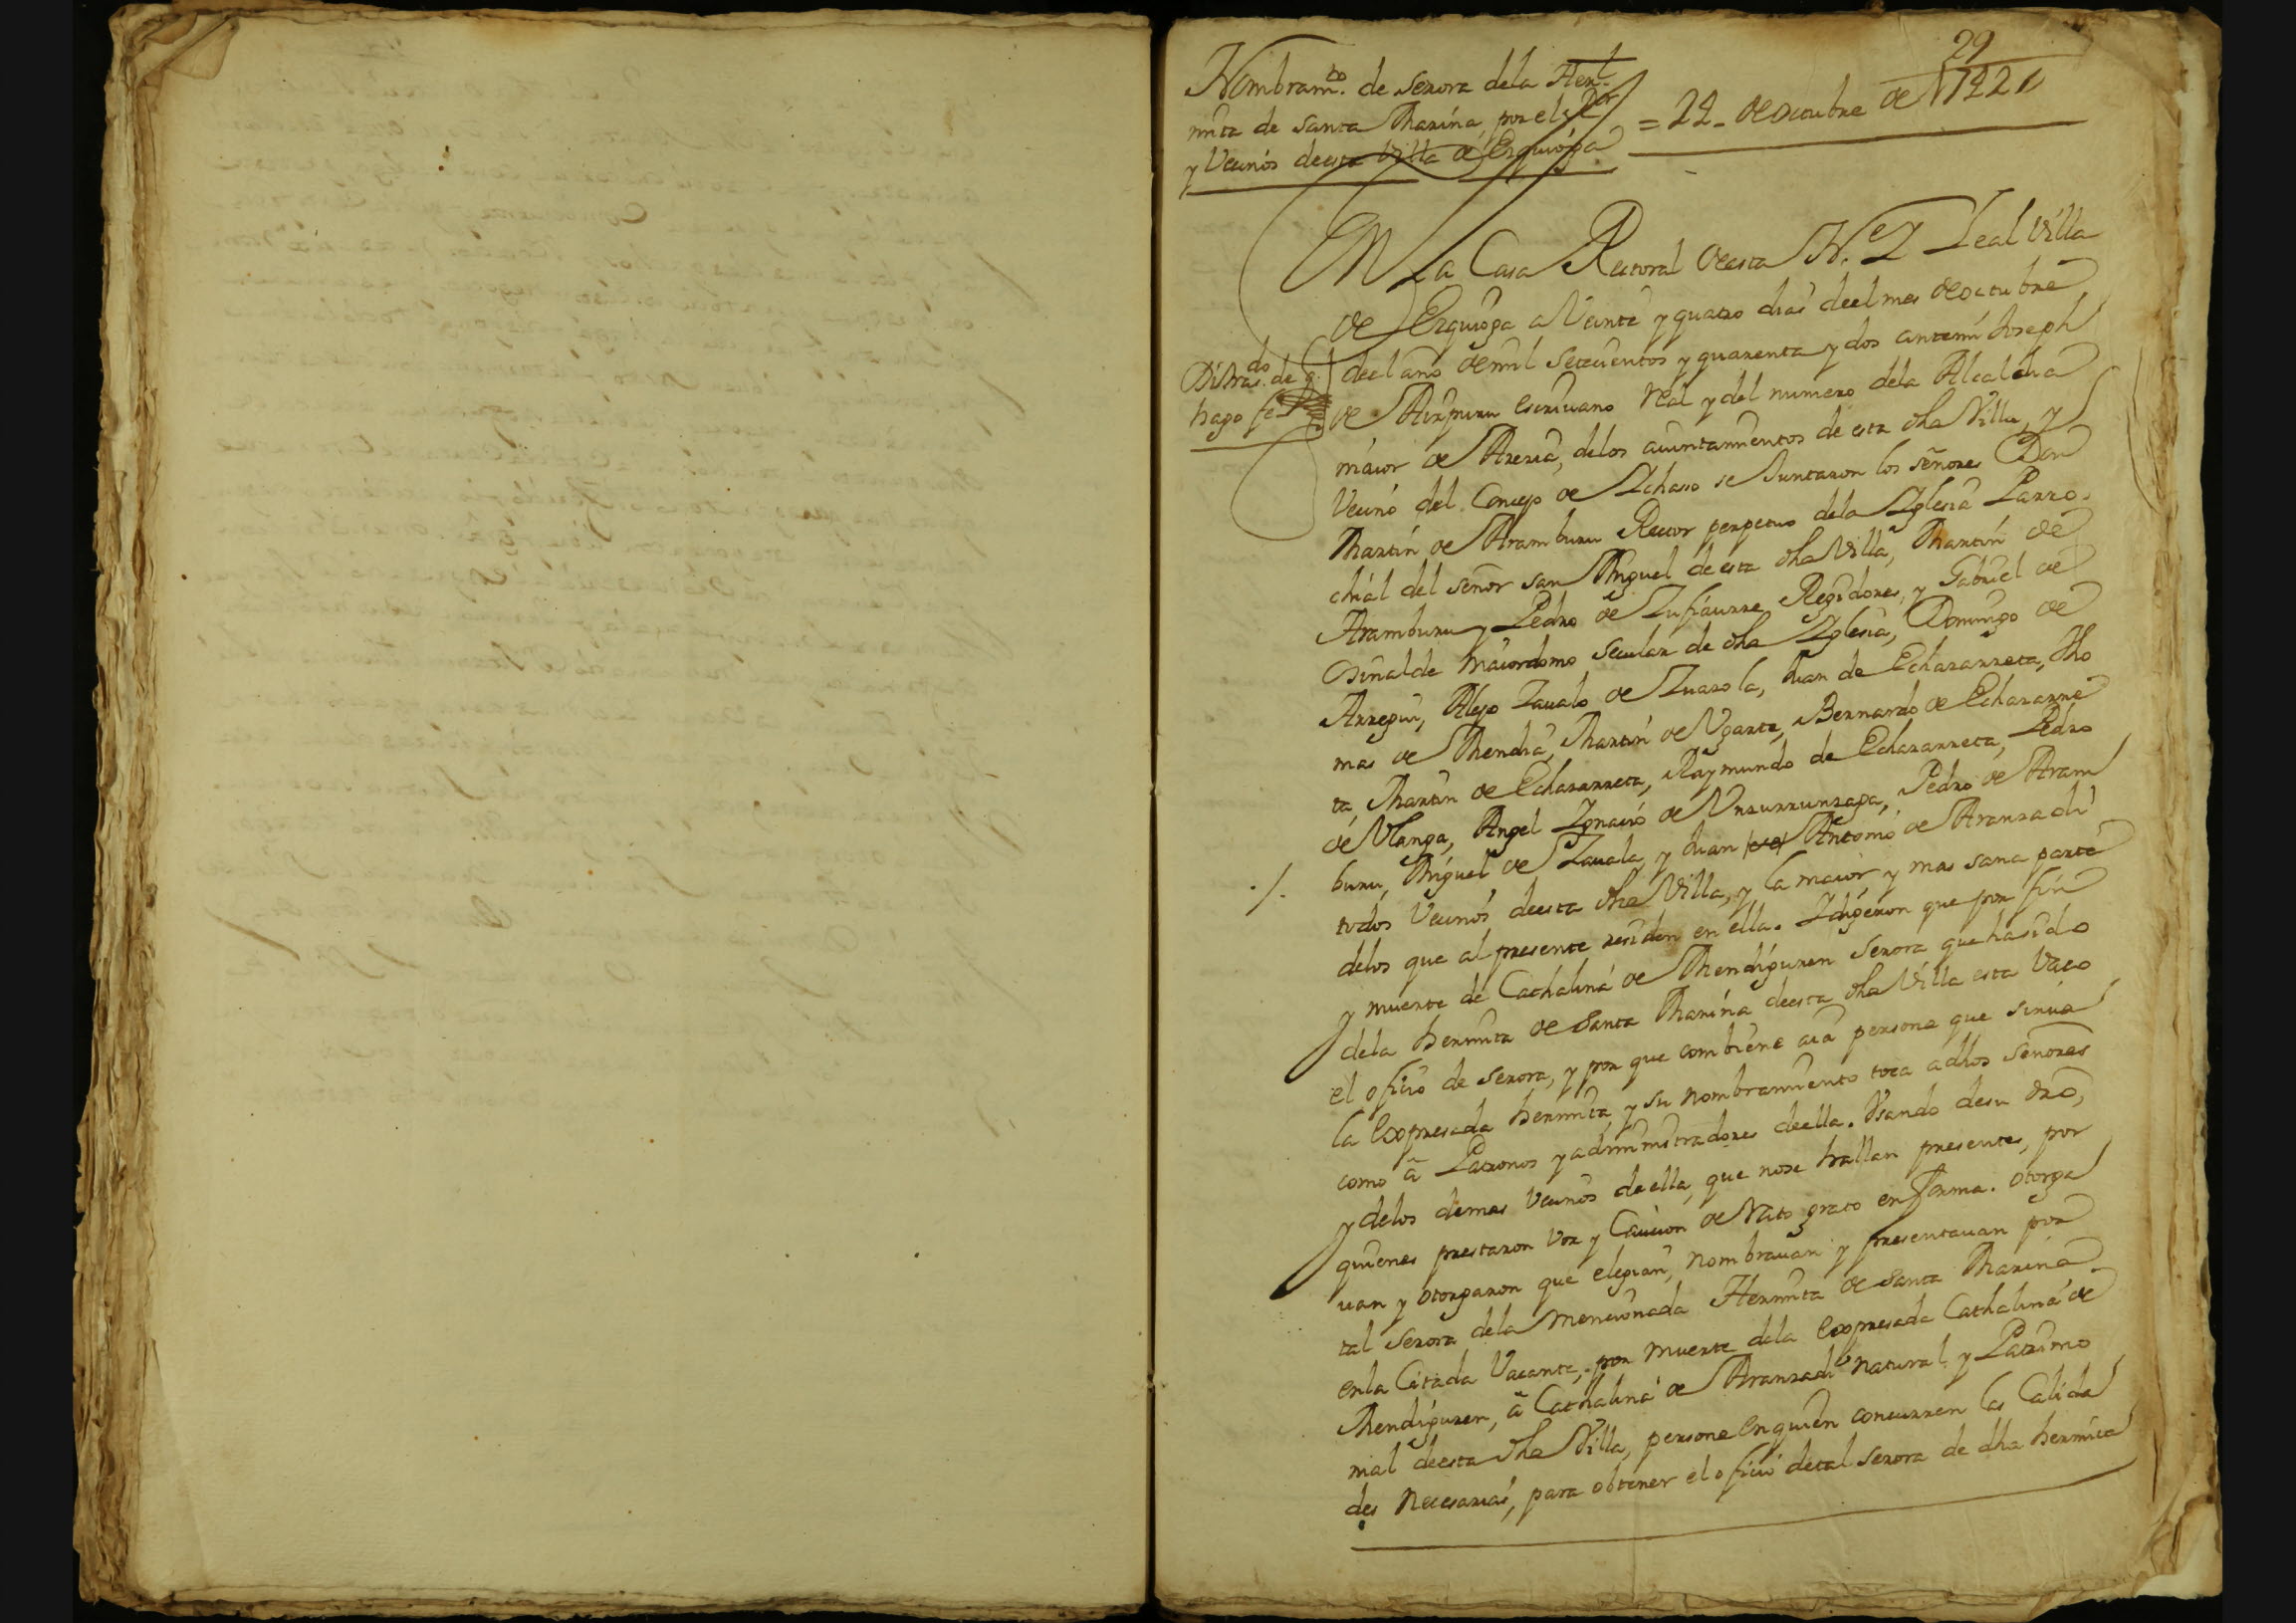 29
Nombram.to de serora dela Her-
mita de santa Marina, por el s.r
y Vecinos deesta Villa de Ezquioga
= 24 - de octubre de 1742
EN La Casa Rectoral deesta N. e L Leal Villa
de Ezquioga a Veinte y quatro dias deel mes de octubre
deel año de mil Setecientos y quarenta y dos antemi Joseph
de Aizpuru escriuano real y del numero dela Alcaldia
maior de Areria, delos aiuntamientos de esta dha Villa, y
Vecino del Concejo de Ichaso se Juntaron los señores Don
Martin de Aramburu Rector perpetuo dela Iglesia Parro-
chial del señor san Miguel de esta dha Villa, Martin de
Aramburu y Pedro de Zufiaurre Regidores, y Gabriel de
maiordomo secular de dha Iglesia, Domingo de
Arregui, Alejo Zaualo de Zuazola, Juan de Echazarreta, Tho
mas de Mendia, Martin de Vgarte, Bernardo de Echazarre
ta, Martin de Echazarreta, Raymundo de Echazarreta, Pedro
de Vlanga, Angel Ignacio de Vnzurrunzaga, Pedro de Aram
buru, Miguel de Zauala, y Juan Antonio de Aranzadi
todos Vecinos deesta dha Villa, y la maior y mas sana parte
delos que al presente residen en ella. I digeron que por fin
y muerte de Cathalina de Mendiguren serora que ha sido
dela hermita de Santa Marina deesta dha Villa esta Vaco
el oficio de serora, y por que combiene aia persona que sirua
la Expresada hermita, y su nombramiento toca adhos señores
como â Patronos y administradores deella. Vsando desu dro,
y delos demas Vecinos deella, que nose hallan presentes, por
quienes prestaron Voz y Caucion de Rato grato en forma. otorga
uan y otorgaron que elegian, nombrauan y presentauan por
tal serora dela Mencionada Hermita de Santa Marina
enla Citada Vacante, por muerte dela Expresada Cathalina de
Mendiguren, â Cathalina de Aranzadi natural y Patrimo
nial deesta dha Villa, persona Enquien concurren las Calida
des Necesarias, para obtener el oficio detal serora de dha hermita
hago fe